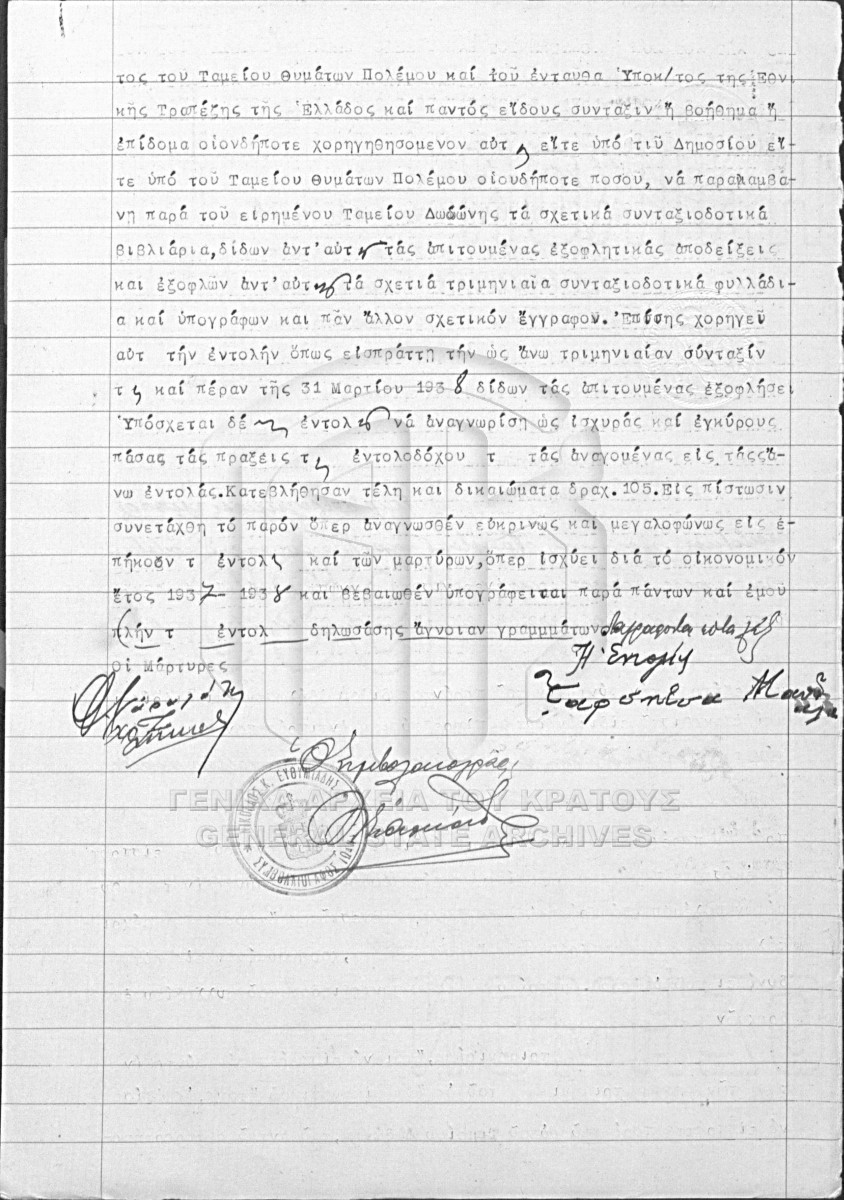 τος του Ταμείου Θυμάτων Πολέμου καί τοῦ ένταυθα Ὑποκ/τος της Ἐθνι
κῆς Τραπέζης τῆς Ἑλλάδος καί παντός εἴδους συνταξιν ἤ βοήθημα ἤ
ἐπίδομα οἱονδήποτε χορηγηθησομενον αὐτ ῃ εἴτε ὑπό τιῦ Δημοσίου εἴ-
τε ὑπό τοῦ Ταμείου Θυμάτων Πολέμου οἱουδήποτε ποσοῦ, νά παραλαμβά-
νῃ παρά τοῦ εἰρημένου Ταμείου Δωδώνης τά σχετικά συνταξιοδοτικά
βιβλιάρια,δίδων ἀντ'αὐτ τάς ἀπιτουμένας ἐξοφλητικάς ἀποδείξεις
και ἐξοφλῶν ἀντ'αὐτ τά σχετιά τριμηνιαῖα συνταξιοδοτικά φυλλάδι-
α καί ὑπογράφων και πᾶν ἄλλον σχετικόν ἔγγραφον. Ἐπίσης χορηγεῖ
αὐτ τήν ἐντολήν ὅπως εἰσπράττῃ τήν ὡς ἄνω τριμηνιαίαν σύνταξίν
τ η καί πέραν τῆς 31 Μαρτίου 193 8 δίδων τάς ἀπιτουμένας ἐξοφλήσει
Ὑπόσχεται δέ ἐντολ νά ἀναγνωρίσῃ ὡς ἰσχυράς καί ἐγκύρους
πάσας τάς πραξεις τ ἐντολοδόχου τ τάς ἀναγομένας εἰς τάςςἄ-
νω ἐντολάς.Κατεβλήθησαν τέλη και δικαιώματα δραχ.105.Εἰς πίστωσιν
συνετάχθη τό παρόν ὅπερ ἀναγνωσθέν εὐκρινῶς και μεγαλοφώνως εἰς ἐ-
πήκοον τ ἐντολ καί τῶν μαρτύρων,ὅπερ ἰσχύει διά τό οἰκονομικόν
ἔτος 193 7 - 193 8 και βεβαιωθέν ὑπογράφειται παρά πάντων καί ἐμοῦ
(πλήν τ ἐντολ δηλωσάσης ἄγνοιαν γραμμμάτων
Ἡ Ἐντολεύς
οἱ Μάρτυρες
Ὁ Συμβολαιογράφος
ΕΥΘΥΜΙΑΔΗΣ
ΓΕΝΙΚΑ ΑΡΧΕΙΑ ΤΟΥ ΚΡΑΤΟΥΣ
GENERAL STATE ARCHIVES